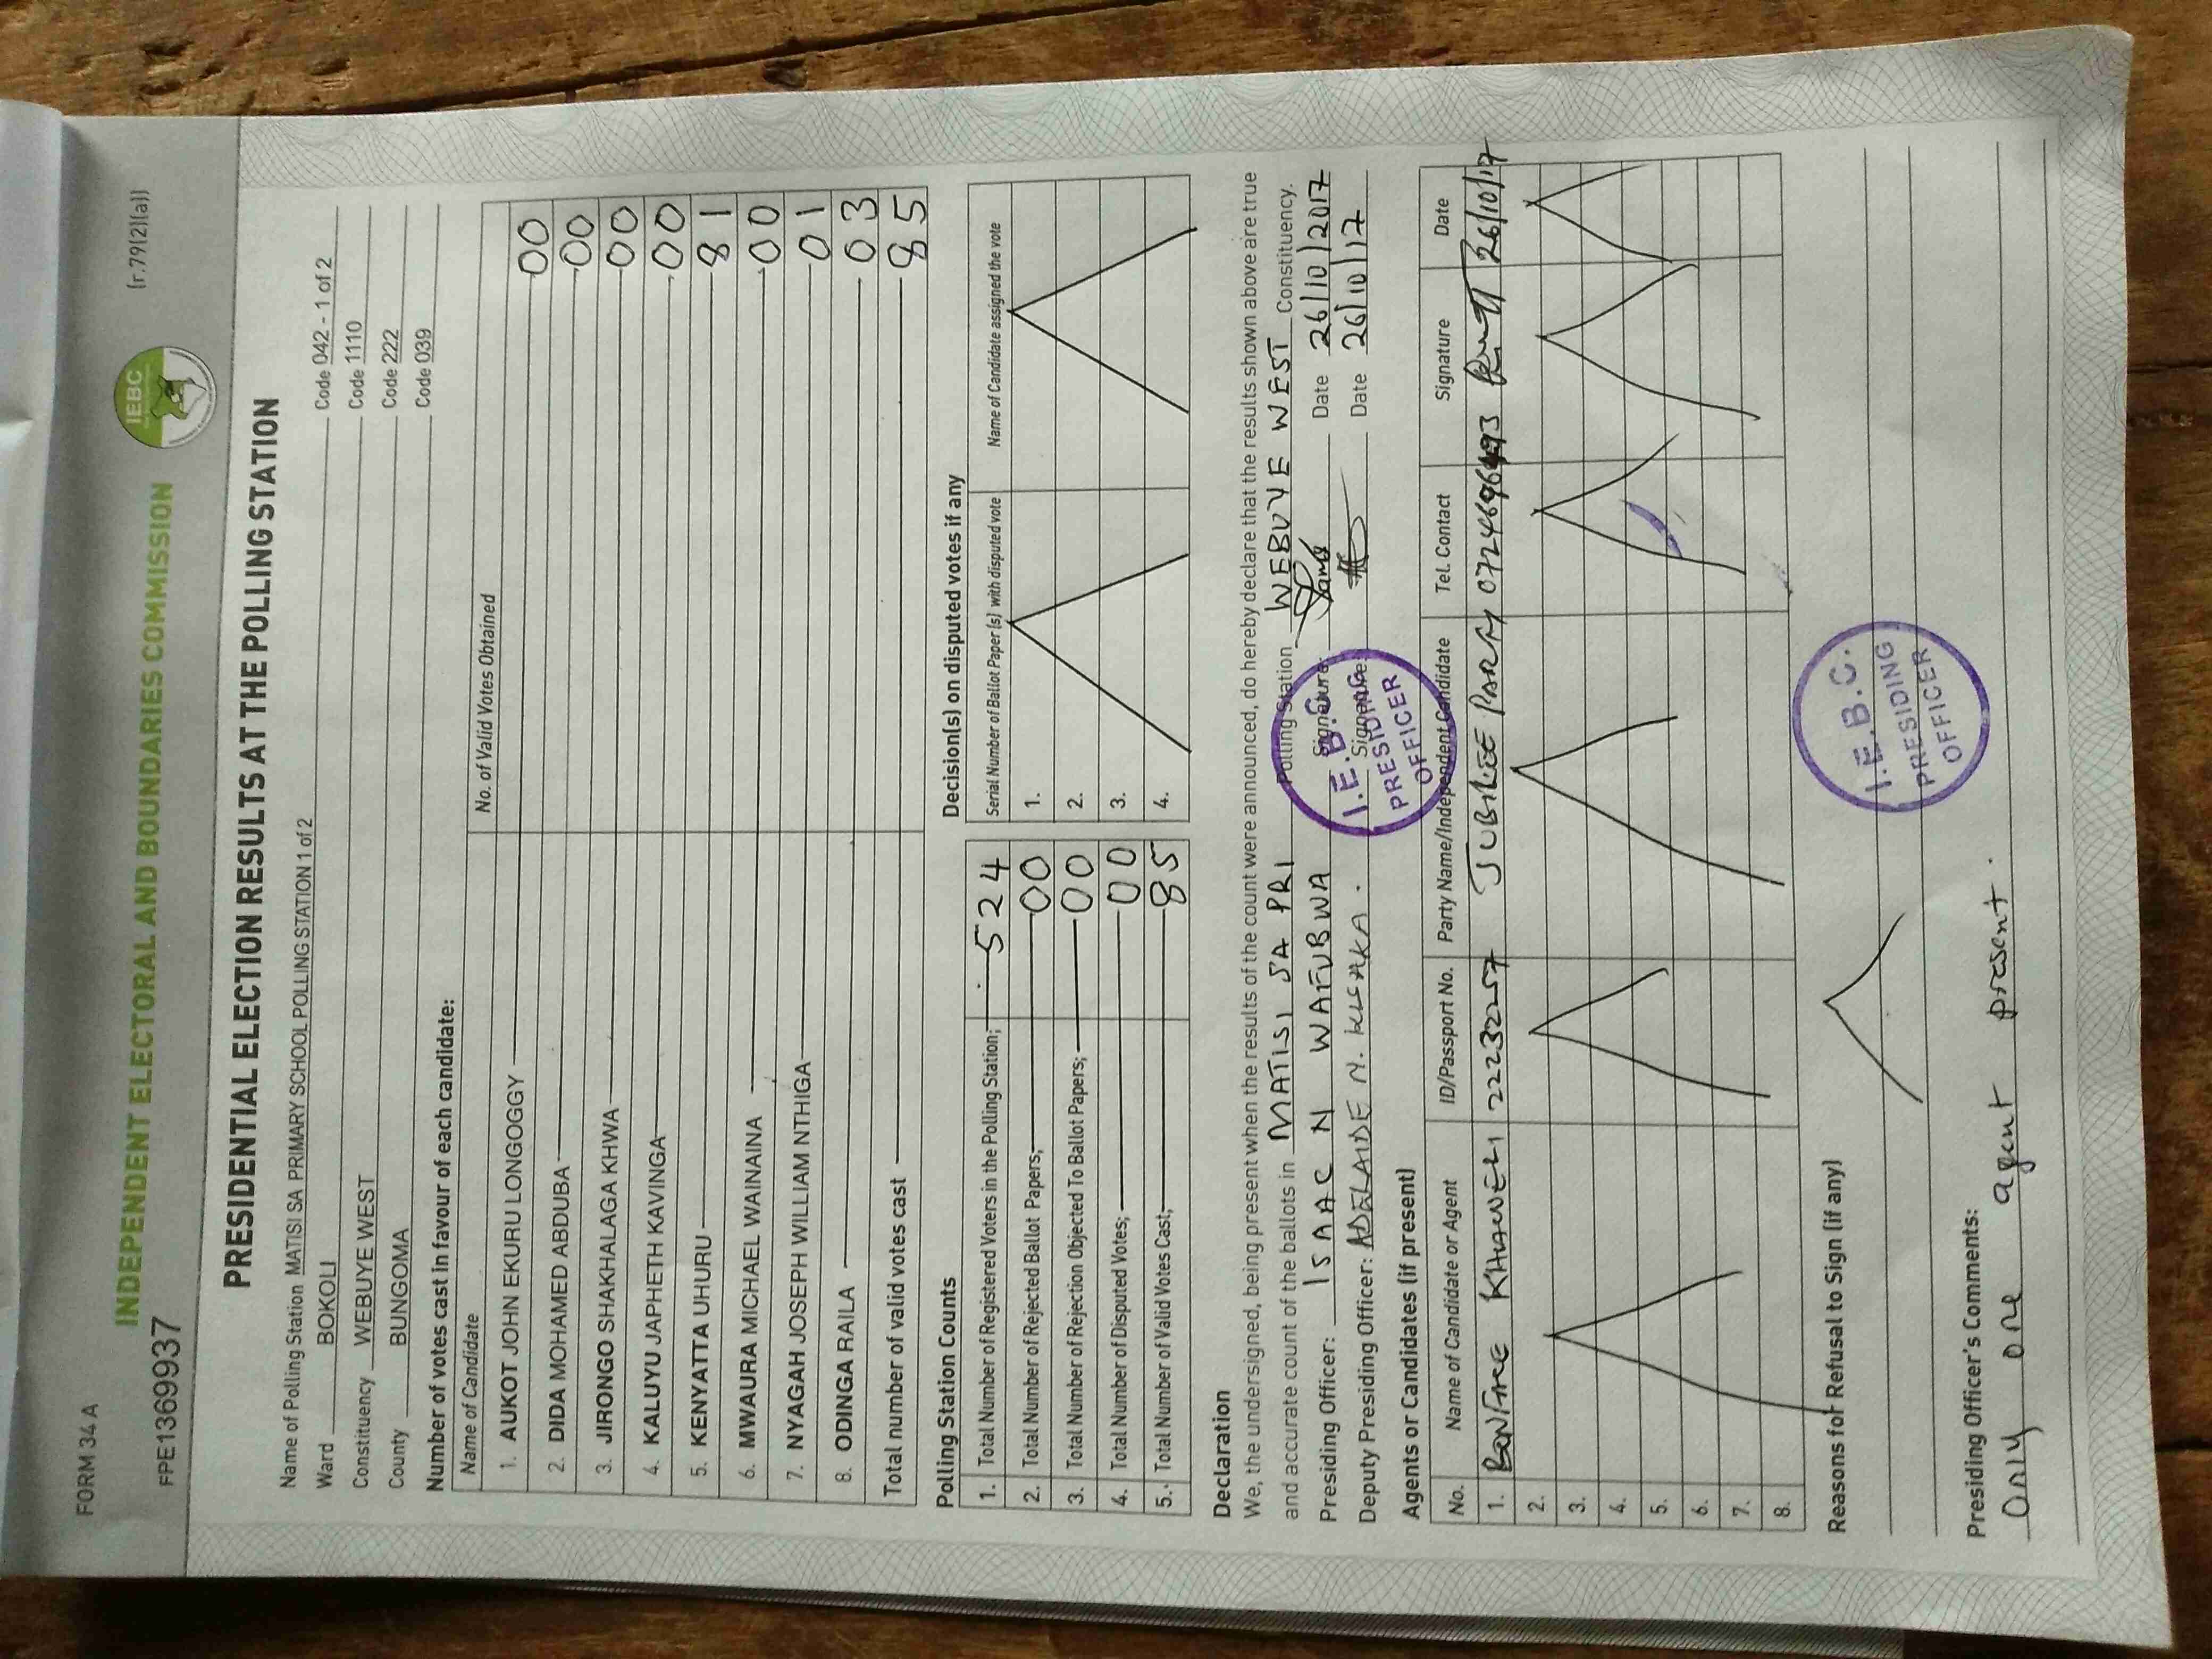 FORM 34 A
(r.79(2)(a))
IEBC
INDEPENDENT ELECTORAL AND BOUNDARIES COMMISSION
FPE1369937
PRESIDENTIAL ELECTION RESULTS AT THE POLLING STATION
Name of Polling Station MATISI SA PRIMARY SCHOOL POLLING STATION 1 of 2 Code 042 - 1 of 2
Ward BOKOLI Code 1110
Constituency WEBUYE WEST Code 222
County BUNGOMA Code 039
Number of votes cast in favour of each candidate:
Name of Candidate No. of Valid Votes Obtained
1. AUKOT JOHN EKURU LONGOGGY 00
2. DIDA MOHAMED ABDUBA 00
3. JIRONGO SHAKHALAGA KHWA 00
4. KALUYU JAPHETH KAVINGA 00
5. KENYATTA UHURU 81
6. MWAURA MICHAEL WAINAINA 00
7. NYAGAH JOSEPH WILLIAM NTHIGA 01
8. ODINGA RAILA 03
Total number of valid votes cast 85
Polling Station Counts
1. Total Number of Registered Voters in the Polling Station; 524
2. Total Number of Rejected Ballot Papers; 00
3. Total Number of Rejection Objected To Ballot Papers; 00
4. Total Number of Disputed Votes; 00
5. Total Number of Valid Votes Cast; 85
Decision(s) on disputed votes if any
Serial Number of Ballot Paper(s) with disputed vote Name of Candidate assigned the vote
1.
2.
3.
4.
Declaration
We, the undersigned, being present when the results of the count were announced, do hereby declare that the results shown above are true
and accurate count of the ballots in MATISI SA PRI Polling Station WEBUYE WEST Constituency.
Presiding Officer: ISAAC N WAFUBWA Signature: Date 26/10/2017
Deputy Presiding Officer: ADELAIDE N. Signature: Date 26/10/17
I.E.B.C.
PRESIDING
OFFICER
Agents or Candidates (if present)
No. Name of Candidate or Agent ID/Passport No. Party Name/Independent Candidate Tel. Contact Signature Date
1. BONFACE KHAWELI 22232257 JUBILEE PARTY 26/10/17
2.
3.
4.
5.
6.
7.
8.
Reasons for Refusal to Sign (if any)
I.E.B.C.
PRESIDING
OFFICER
Presiding Officer's Comments:
Only one agent present.